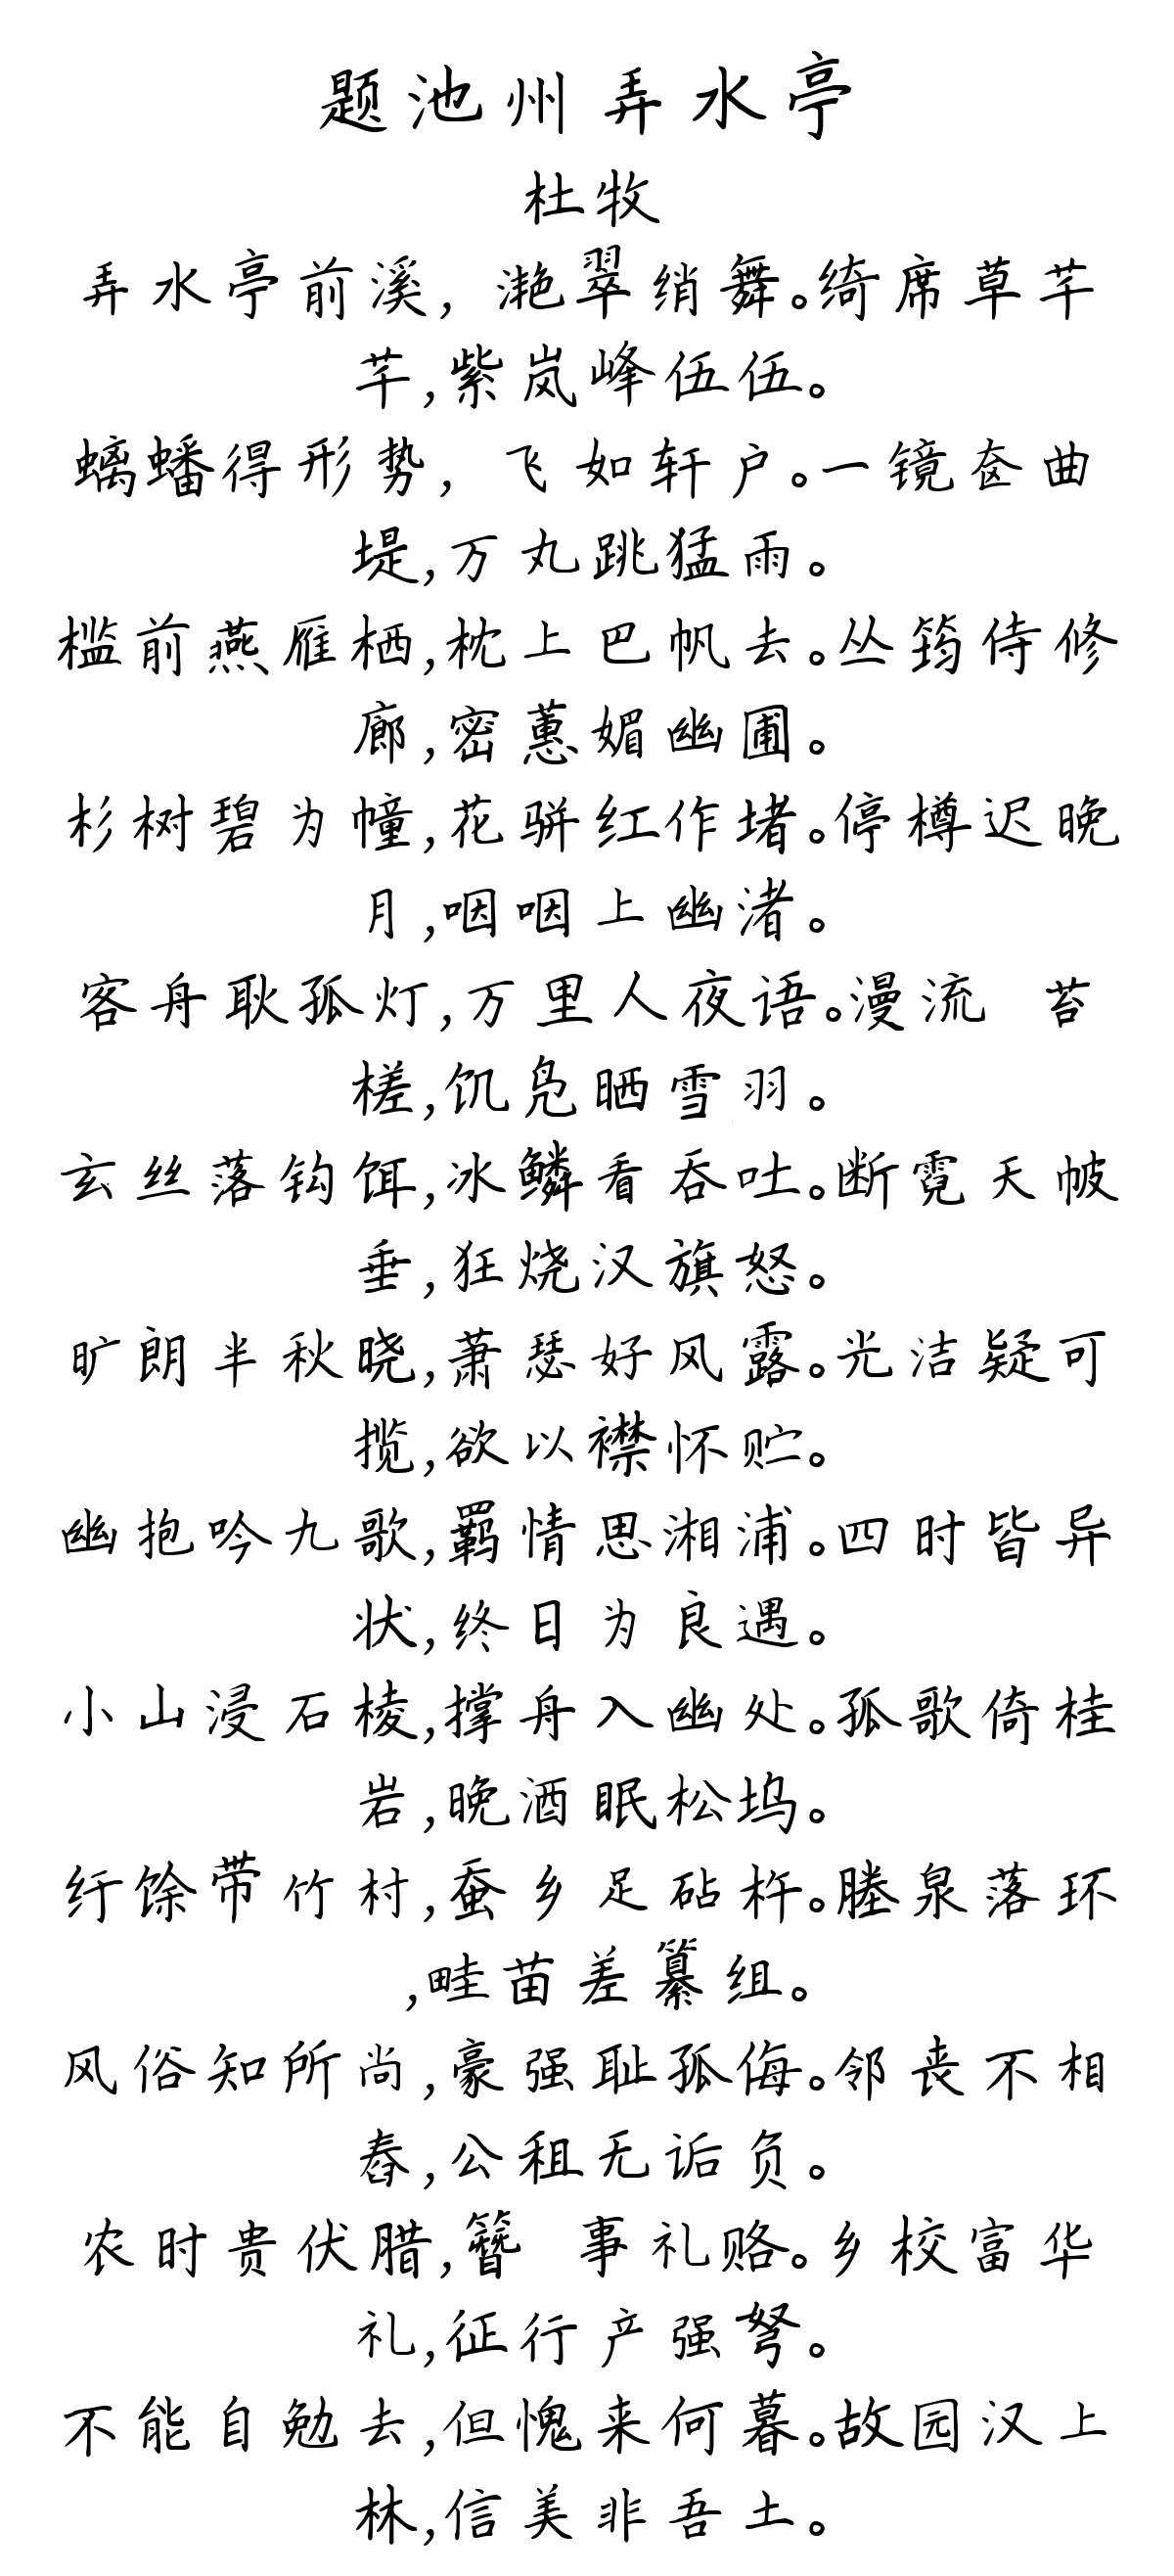 题池州弄水亭
杜牧
弄水亭前溪，滟翠绡舞。绮席草芊
芊，紫岚峰伍伍。
螭蟠得形势，飞如轩户。一镜奁曲
堤，万丸跳猛雨。
槛前燕雁栖，枕上巴帆去。丛筠侍修
廊，密蕙媚幽圃。
杉树碧为幢，花骈红作堵。停樽迟晚
月，咽咽上幽渚。
客舟耿孤灯，万里人夜语。漫流 苔
槎，饥凫晒雪羽。
玄丝落钩饵，冰鳞看吞吐。断霓天帔
垂，狂烧汉旗怒。
旷朗半秋晓，萧瑟好风露。光洁疑可
揽，欲以襟怀贮。
幽抱吟九歌，羁情思湘浦。四时皆异
状，终日为良遇。
小山浸石棱，撑舟入幽处。孤歌倚桂
岩，晚酒眠松坞。
纡馀带竹村，蚕乡足砧杵。塍泉落环
，畦苗差纂组。
风俗知所尚，豪强耻孤侮。邻丧不相
舂，公租无诟负。
农时贵伏腊，簪 事礼赂。乡校富华
礼，征行产强弩。
不能自勉去，但愧来何暮。故园汉上
林，信美非吾土。